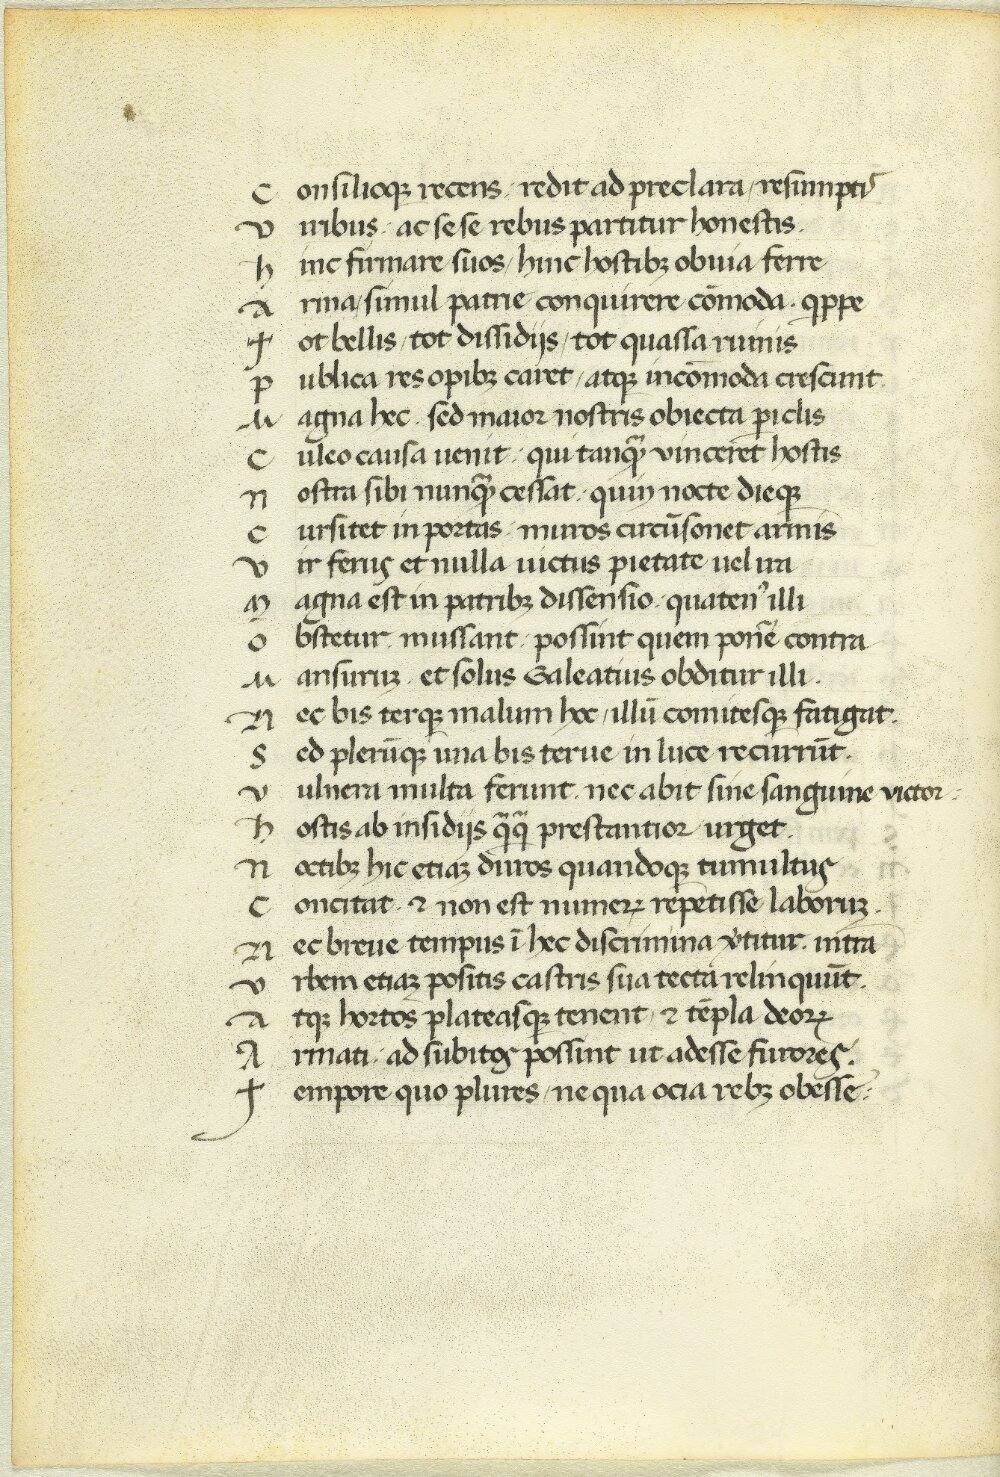 C onsilioqꝫ recens / redit ad preclara / resumptis
V iribus · ac sese rebus partitur honestis ·
h inc firmare suos / hinc hostibꝫ obuia ferre
A rma / simul patrie conquirere cōmoda · qppe
T ot bellis / tot dissidijs / tot quassa ruinis
P ublica res opibꝫ caret / atqꝫ incōmoda crescunt ·
M agna hec · sed maior nostris obiecta ꝑiclis
C uleo causa uenit · qui tanqꝫ vinceret hostis
N ostra sibi nunqꝫ cessat · quin nocte dieqꝫ
C ursitet in portas · muros circūsonet armis
V ir ferꝰ et nulla uictus pietate uel ira
M agna est in patribꝫ dissensio · quatenꝰ illi
O bstetur · mussant · possint quem ponē contra
M ansuruꝫ · et solus Galeatius obditur illi ·
N ec bis terqꝫ malum hoc / illū comitesqꝫ fatigat ·
S ed plerūqꝫ una bis terue in luce recurrūt ·
V ulnera multa ferunt · nec abit sine sanguine victor ·
h ostis ab insidijs qͣqͣ prestantior / urget ·
N octibꝫ hic etiaꝫ duros quandoqꝫ tumultꝰ
C oncitat · ⁊ non est numeꝝ repetisse laboruꝫ ·
N ec breue tempus ī hec discrimina v̓titur · intra
V rbem etiaꝫ positis castris sua tecta relinquūt ·
A tqꝫ hortos plateasqꝫ tenent / ⁊ tēpla deoꝝ
A rmati · ad subitos possint ut adesse furores ·
T empore quo plures / ne qua ocia rebꝫ obesse ·